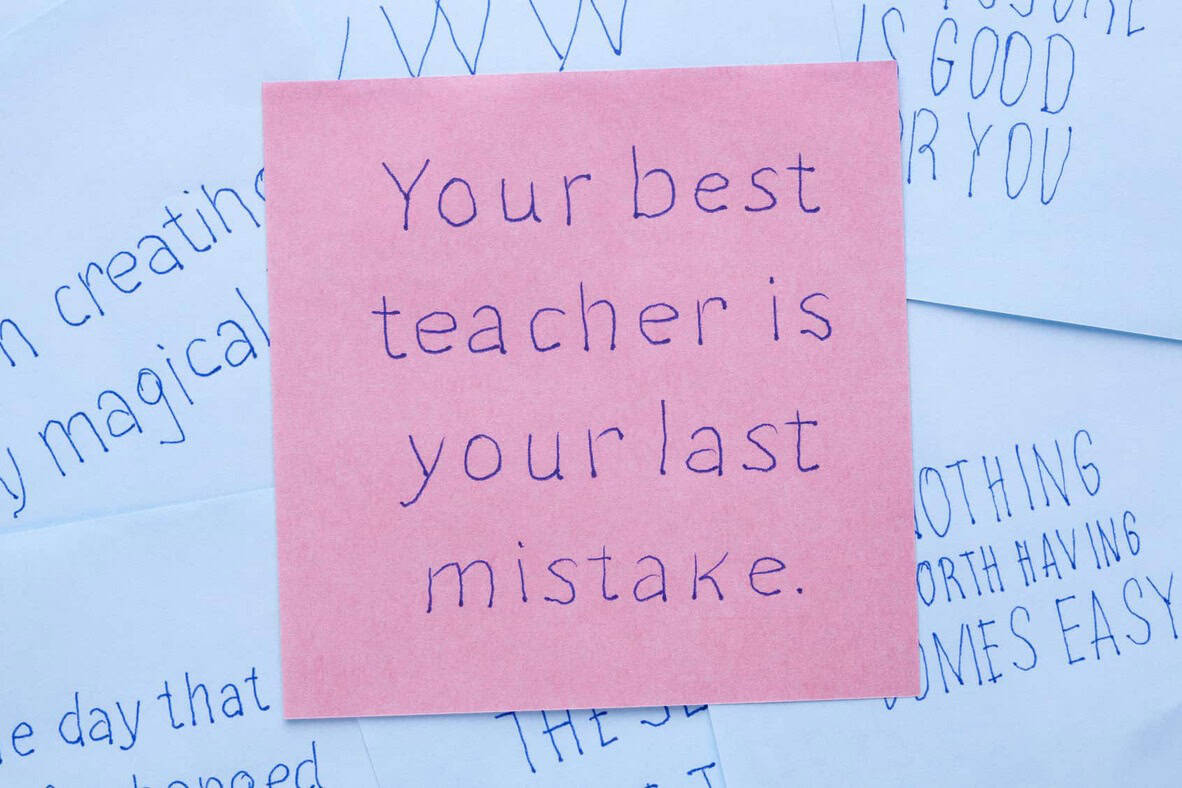 IS GOOD
YOU
creating
magical
Your best
teacher is
your last
mistake.
NOTHING
WORTH HAVING
COMES EASY
day that
THE